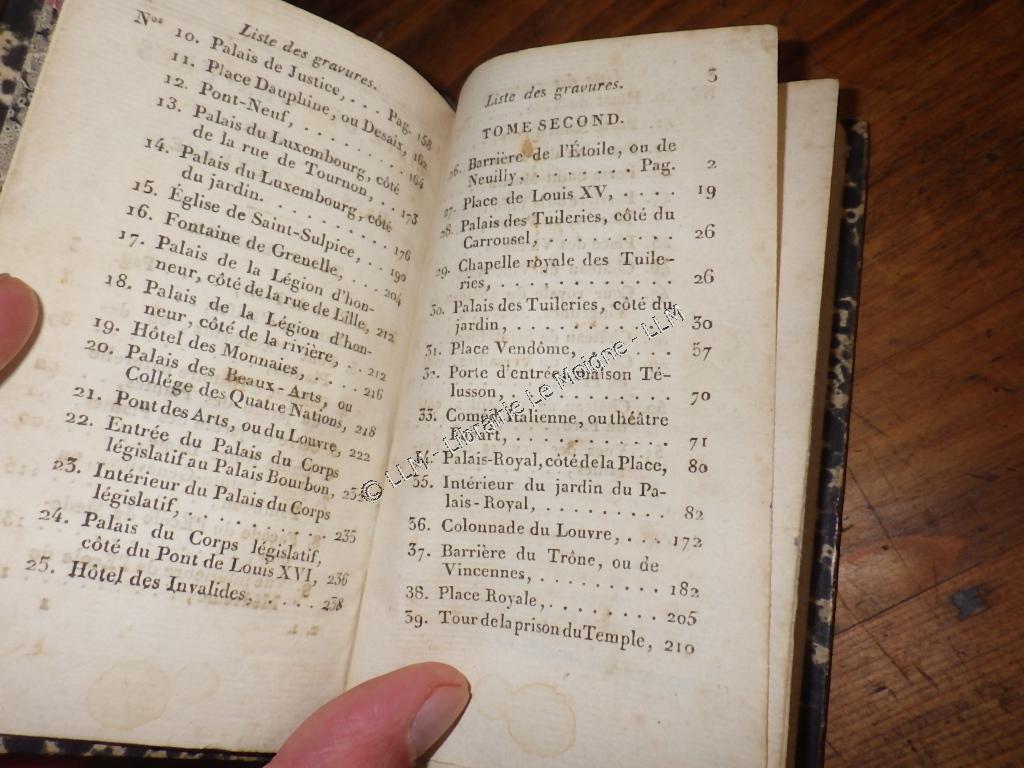 Liste des gravures.
Nos
10. Palais de Justice, . . . Pag. 158
11. Place Dauphine, ou Desaix, 162
12. Pont-Neuf, . . . . . . . . . 164
13. Palais du Luxembourg, côté
de la rue de Tournon, . . 173
14. Palais du Luxembourg, côté
du jardin. . . . . . . . . . . 176
15. Église de Saint-Sulpice, . . 190
16. Fontaine de Grenelle, . . . 204
17. Palais de la Légion d'hon-
neur, côté de la rue de Lille, 212
18. Palais de la Légion d'hon-
neur, côté de la rivière, . . 212
19. Hôtel des Monnaies, . . . . 216
20. Palais des Beaux-Arts, ou
Collége des Quatre Nations, 218
21. Pont des Arts, ou du Louvre, 222
22. Entrée du Palais du Corps
législatif au Palais Bourbon,
23. Intérieur du Palais du Corps
législatif, . . . . . . . . . 235
24. Palais du Corps législatif,
côté du Pont de Louis XVI, 236
25. Hôtel des Invalides, . . . . . 238
3
Liste des gravures.
TOME SECOND.
26. Barrière de l'Étoile, ou de
Neuilly, . . . . . . . . Pag. 2
27. Place de Louis XV, . . . . 19
28. Palais des Tuileries, côté du
Carrousel, . . . . . . . . . 26
29. Chapelle royale des Tuile-
ries, . . . . . . . . . . . . 26
30. Palais des Tuileries, côté du
jardin, . . . . . . . . . . . 30
31. Place Vendôme, . . . . . . 57
32. Porte d'entrée, maison Té-
lusson, . . . . . . . . . . . 70
33. Coméd. Italienne, ou théâtre
Favart, . . . . . . . . . . . 71
34. Palais-Royal, côté de la Place, 80
35. Intérieur du jardin du Pa-
lais-Royal, . . . . . . . . . 82
36. Colonnade du Louvre, . . . 172
37. Barrière du Trône, ou de
Vincennes, . . . . . . . . . 182
38. Place Royale, . . . . . . . . 205
39. Tour de la prison du Temple, 210
© LLM - Librairie Le Moigne - LLM